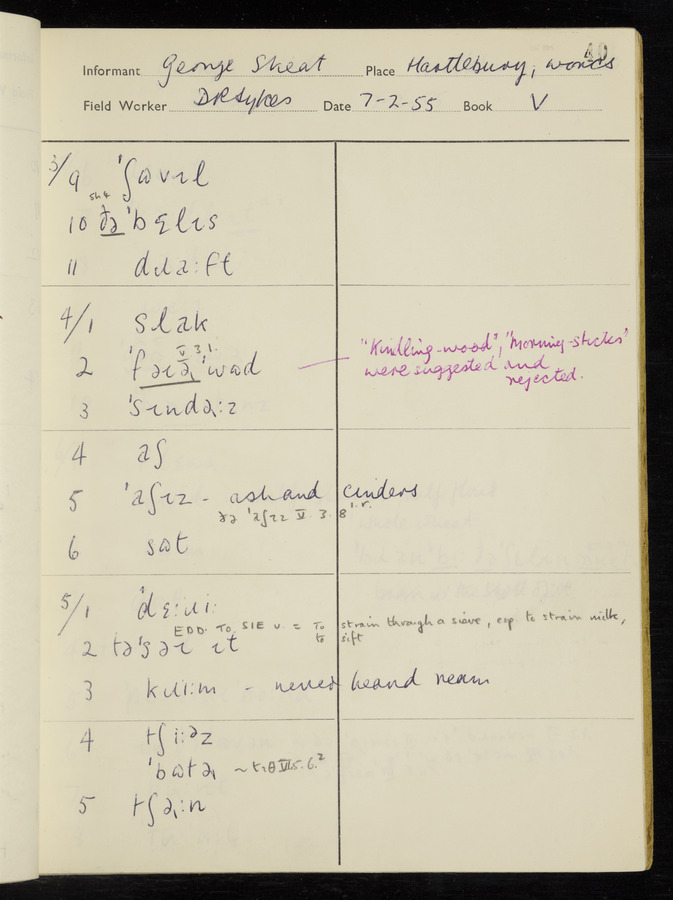 40
Informant George Skeat Place Hartlebury, Worcs
Field Worker DRSykes Date 7-2-55 Book V
3/9 ˈʃɷvɪl
10 ðə ˈbɛlɪs
11 dɹa:ft
4/1 slak
V 3.1.
2 ˈfəɪə ˈwɷd
"Kindling-wood", "morning-sticks"
were suggested and
rejected.
3 ˈsɪndə:z
4 aʃ
5 ˈaʃɪz - ash and cinders
ðə ˈaʃɪz V. 3. 8 i.r.
6 sɷt
5/1 ˈdɛ:ɹi:
EDD. TO SIE v. = To strain through a sieve, esp. to strain milk,
to sift
2 tə ˈsəɪ ɪt
3 kɹi:m - never heard ream
4 tʃi:əz
ˈbɷtə ~ V. 5. 6.²
5 tʃə:n